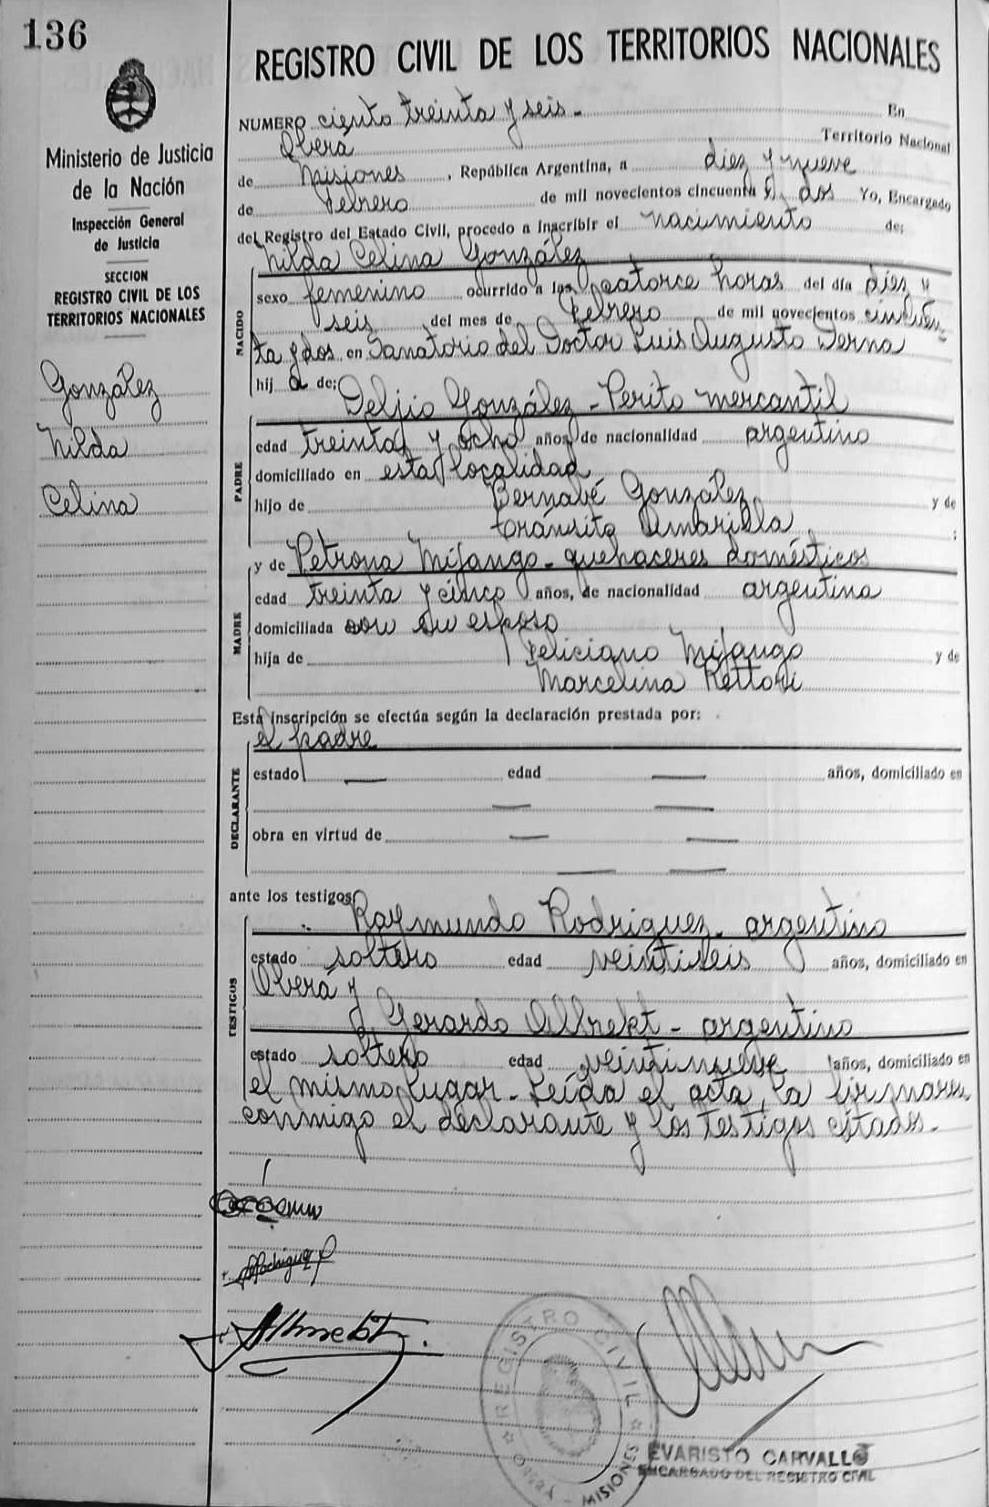 136
REGISTRO CIVIL DE LOS TERRITORIOS NACIONALES
Ministerio de Justicia
de la Nación
Inspección General
de Justicia
SECCION
REGISTRO CIVIL DE LOS
TERRITORIOS NACIONALES
González
Nilda
Celina
NUMERO ciento treinta y seis.- En
Oberá Territorio Nacional
de Misiones, República Argentina, a diez y nueve
de Febrero de mil novecientos cincuenta y dos Yo, Encargado
del Registro del Estado Civil, procedo a inscribir el nacimiento de:
NACIDO
Nilda Celina González
sexo femenino ocurrido a las catorce horas del día diez y
seis del mes de Febrero de mil novecientos cincuen-
ta y dos en Sanatorio del Doctor Luis Augusto Derna
hij a de:
PADRE
Delfio González - Perito mercantil
edad treinta y ocho años, de nacionalidad argentino
domiciliado en esta localidad
hijo de Bernabé González y de
Tránsito Amarilla ;
MADRE
y de Petrona Mijango - quehaceres domésticos
edad treinta y cinco años, de nacionalidad argentina
domiciliada con su esposo
hija de Feliciano Mijango y de
Marcelina Rettori
Esta inscripción se efectúa según la declaración prestada por:
DECLARANTE
el padre
estado — edad — años, domiciliado en
— —
obra en virtud de — —
— —
ante los testigos
TESTIGOS
Raymundo Rodriguez - argentino
estado soltero edad veintiseis años, domiciliado en
Oberá y
Gerardo Albrekt - argentino
estado soltero edad veintinueve años, domiciliado en
el mismo lugar - Leída el acta, la firman
conmigo el declarante y los testigos citados.-
REGISTRO CIVIL
OBERA - MISIONES
EVARISTO CARVALLO
ENCARGADO DEL REGISTRO CIVIL